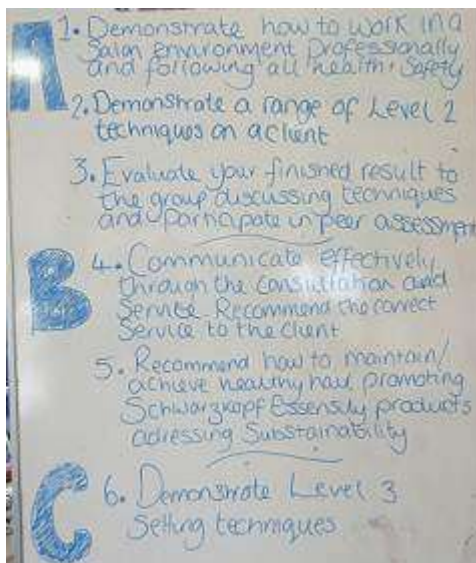 A
1. Demonstrate how to work in a
Salon environment professionally
and following all health + Safety
2. Demonstrate a range of Level 2
techniques on a client
3. Evaluate your finished result to
the group discussing techniques
and participate in peer assessment
B
4. Communicate effectively
through the consultation and
Service. Recommend the correct
Service to the client
5. Recommend how to maintain/
achieve healthy hair promoting
Schwarzkopf Essensity products
adressing Substainability
C
6. Demonstrate Level 3
Selling techniques